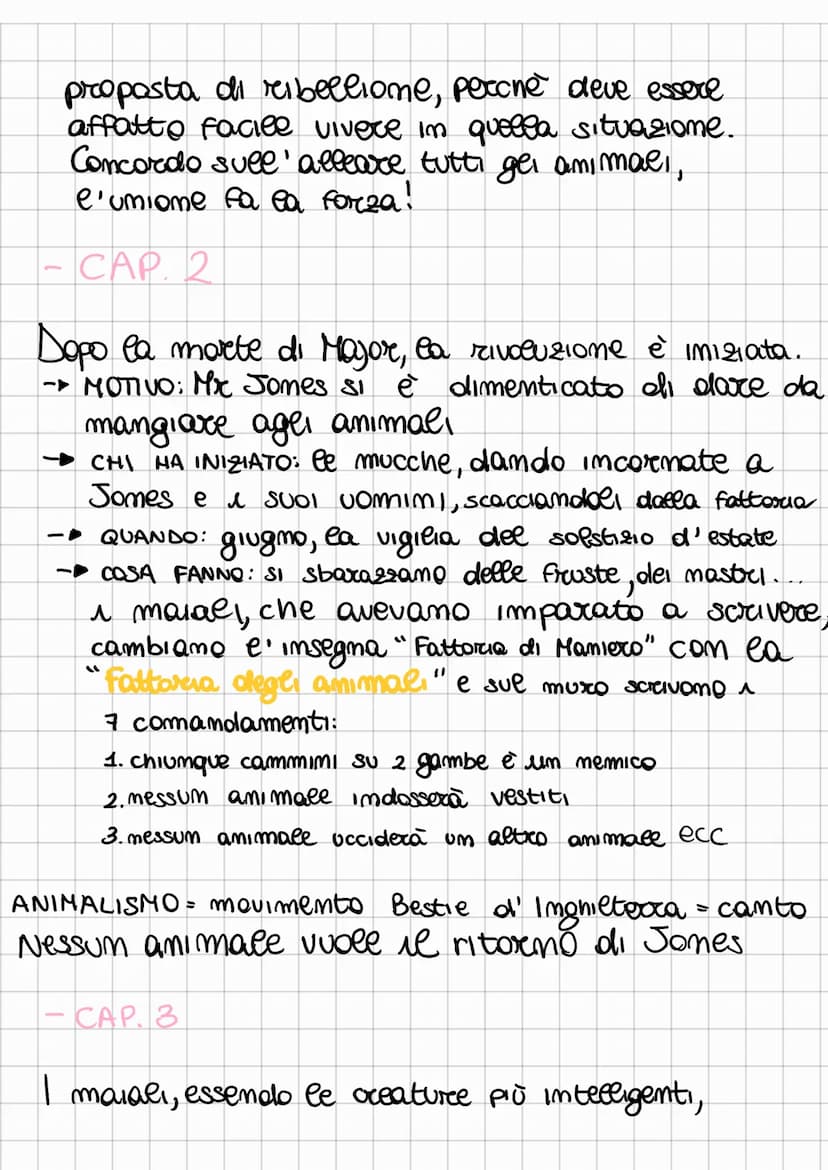 proposta di ribellione, perchè deve essere
affatto facile vivere in quella situazione.
Concordo sull'alleare tutti gli animali,
l'unione fa la forza!
- CAP. 2
Dopo la morte di Major, la rivoluzione è iniziata.
-> MOTIVO: Mr Jones si è dimenticato di dare da
mangiare agli animali
-> CHI HA INIZIATO: le mucche, dando incornate a
Jones e i suoi uomini, scacciandoli dalla fattoria
-> QUANDO: giugno, la vigilia del solstizio d'estate
-> COSA FANNO: si sbarazzano delle fruste, dei nastri...
i maiali, che avevano imparato a scrivere,
cambiano l'insegna "Fattoria di Maniero" con la
"Fattoria degli animali" e sul muro scrivono i
7 comandamenti:
1. chiunque cammini su 2 gambe è un nemico
2. nessun animale indosserà vestiti
3. nessun animale ucciderà un altro animale ecc
ANIMALISMO = movimento Bestie d'Inghilterra = canto
Nessun animale vuole il ritorno di Jones
- CAP. 3
I maiali, essendo le creature più intelligenti,